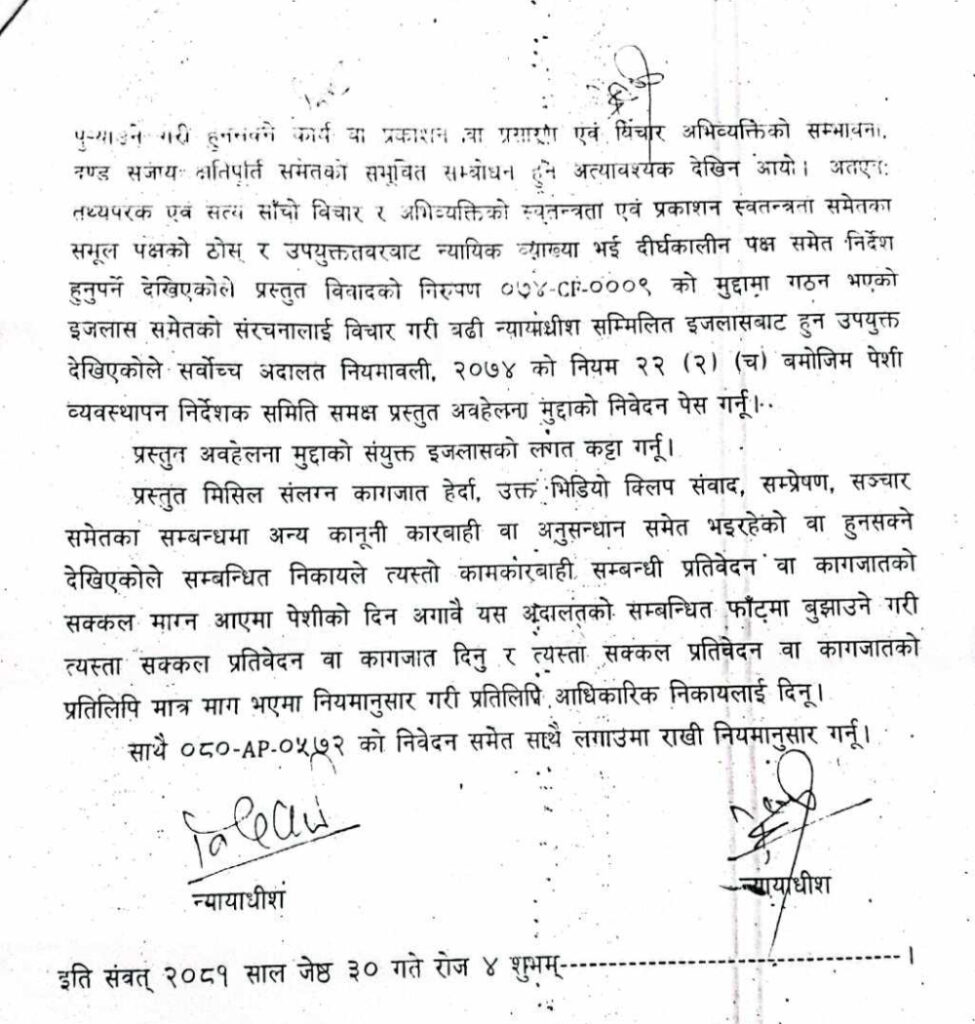 पुर्‍याउने गरी हुनसक्ने कार्य वा प्रकाशन वा प्रसारण एवं विचार अभिव्यक्तिको सम्भावना,
दण्ड सजाय क्षतिपूर्ति समेतको समुचित सम्बोधन हुने अत्यावश्यक देखिन आयो। अतएवः
तथ्यपरक एवं सत्य साँचो विचार र अभिव्यक्तिको स्वतन्त्रता एवं प्रकाशन स्वतन्त्रता समेतका
समूल पक्षको ठोस् र उपयुक्ततवरबाट न्यायिक व्याख्या भई दीर्घकालीन पक्ष समेत निर्देश
हुनुपर्ने देखिएकोले प्रस्तुत विवादको निरुपण ०७४-CF-०००९ को मुद्दामा गठन भएको
इजलास समेतको संरचनालाई विचार गरी बढी न्यायाधीश सम्मिलित इजलासबाट हुन उपयुक्त
देखिएकोले सर्वोच्च अदालत नियमावली, २०७४ को नियम २२ (२) (च) बमोजिम पेशी
व्यवस्थापन निर्देशक समिति समक्ष प्रस्तुत अवहेलना मुद्दाको निवेदन पेस गर्नू।
प्रस्तुत अवहेलना मुद्दाको संयुक्त इजलासको लगत कट्टा गर्नू।
प्रस्तुत मिसिल संलग्न कागजात हेर्दा, उक्त भिडियो क्लिप संवाद, सम्प्रेषण, सञ्चार
समेतका सम्बन्धमा अन्य कानूनी कारबाही वा अनुसन्धान समेत भइरहेको वा हुनसक्ने
देखिएकोले सम्बन्धित निकायले त्यस्तो कामकारबाही सम्बन्धी प्रतिवेदन वा कागजातको
सक्कल माग्न आएमा पेशीको दिन अगावै यस अदालतको सम्बन्धित फाँटमा बुझाउने गरी
त्यस्ता सक्कल प्रतिवेदन वा कागजात दिनु र त्यस्ता सक्कल प्रतिवेदन वा कागजातको
प्रतिलिपि मात्र माग भएमा नियमानुसार गरी प्रतिलिपि आधिकारिक निकायलाई दिनू।
साथै ०८०-AP-०५७२ को निवेदन समेत साथै लगाउमा राखी नियमानुसार गर्नू।
न्यायाधीश
न्यायाधीश
इति संवत् २०८१ साल जेष्ठ ३० गते रोज ४ शुभम्------------------------------------।